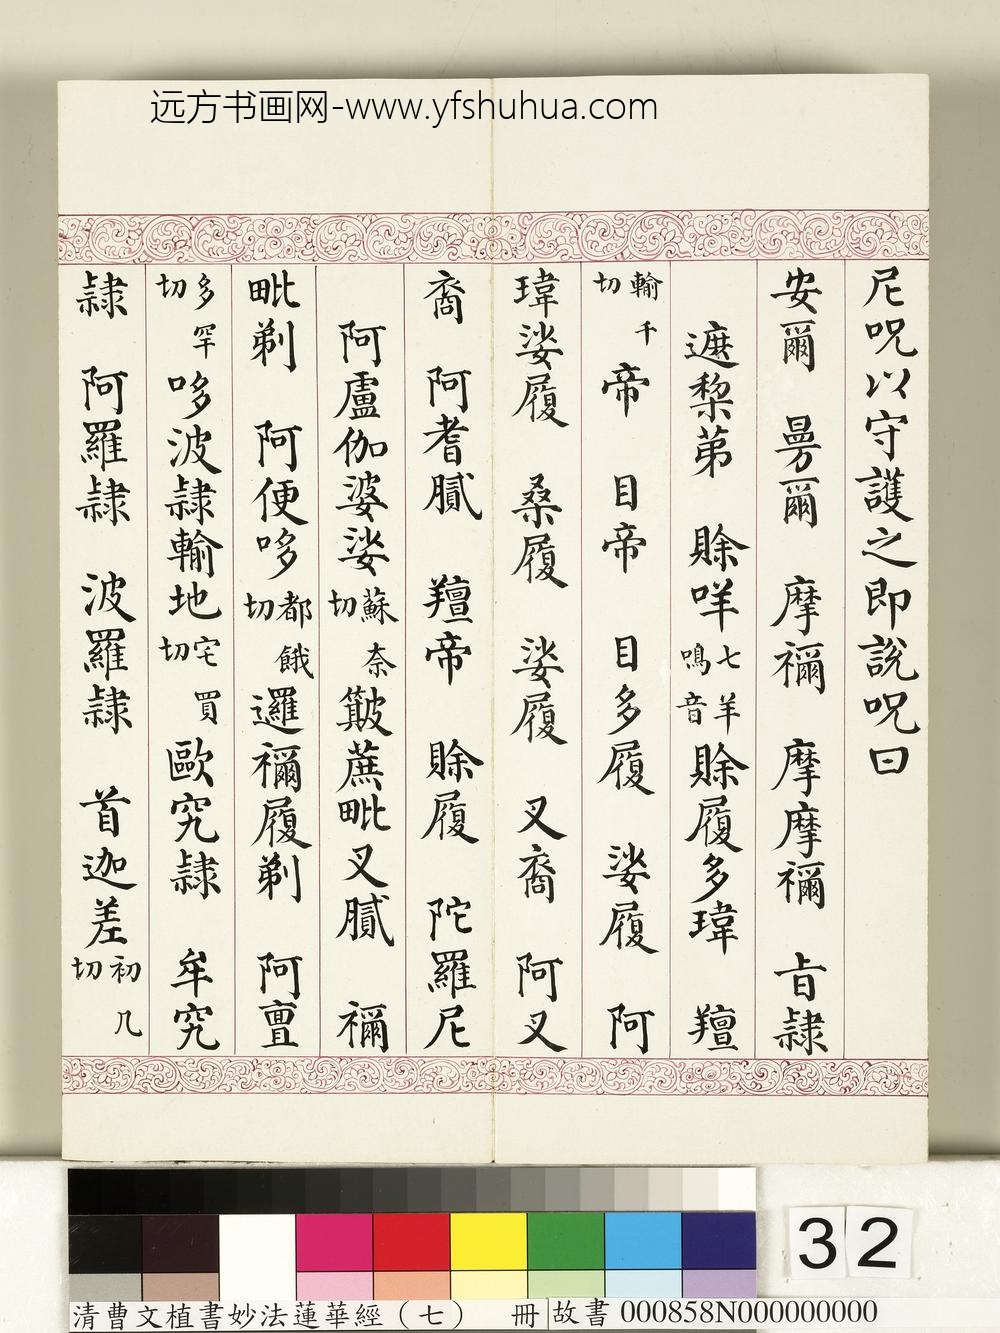 远方书画网-www.yfshuhua.com
尼呪以守護之即說呪曰
安爾 曼爾 摩禰 摩摩禰 旨隷
遮棃苐 賒咩羊鳴音七賒履多瑋 羶
輸千切帝 目帝 目多履 娑履 阿
瑋娑履 桑履 娑履 叉裔 阿叉
裔 阿耆膩 羶帝 賒履 陀羅尼
阿盧伽婆娑蘇奈切簸蔗毗叉膩 禰
毗剃 阿便哆都餓切邏禰履剃 阿亶
多罕切哆波隷輸地宅買切歐究隷 牟究
隷 阿羅隷 波羅隷 首迦差初几切
32
清曹文植書妙法蓮華經（七） 冊 故書 000858N000000000